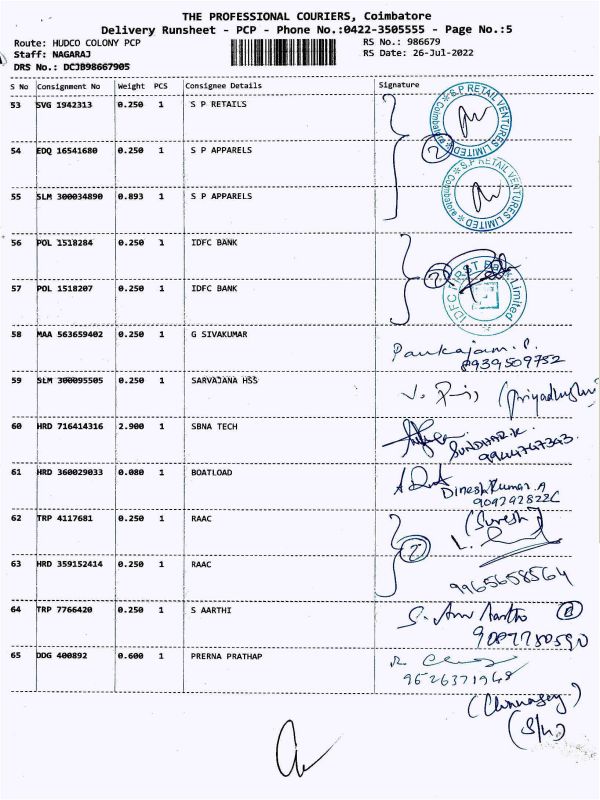 THE PROFESSIONAL COURIERS, Coimbatore
Delivery Runsheet - PCP - Phone No.:0422-3505555 - Page No.:5
Route: HUDCO COLONY PCP RS No.: 986679
Staff: NAGARAJ RS Date: 26-Jul-2022
DRS No.: DCJB98667905
S No Consignment No Weight PCS Consignee Details Signature
53 SVG 1942313 0.250 1 S P RETAILS
S.P RETAIL VENTURES LIMITED Coimbatore
2
54 EDQ 16541680 0.250 1 S P APPARELS
S.P RETAIL VENTURES LIMITED Coimbatore
55 SLM 300034890 0.893 1 S P APPARELS
56 POL 1518284 0.250 1 IDFC BANK
2
IDFC FIRST Bank Limited
57 POL 1518207 0.250 1 IDFC BANK
58 MAA 563659402 0.250 1 G SIVAKUMAR
Pankajam. P.
8939509752
59 SLM 300095505 0.250 1 SARVAJANA HSS
60 HRD 716414316 2.900 1 SBNA TECH
SUNDHAR.K.
9944747343
61 HRD 360029033 0.080 1 BOATLOAD
Dinesh Kumar. A
62 TRP 4117681 0.250 1 RAAC
(Suresh)
2
63 HRD 359152414 0.250 1 RAAC
9965658564
64 TRP 7766420 0.250 1 S AARTHI
65 DDG 400892 0.600 1 PRERNA PRATHAP
9626371948